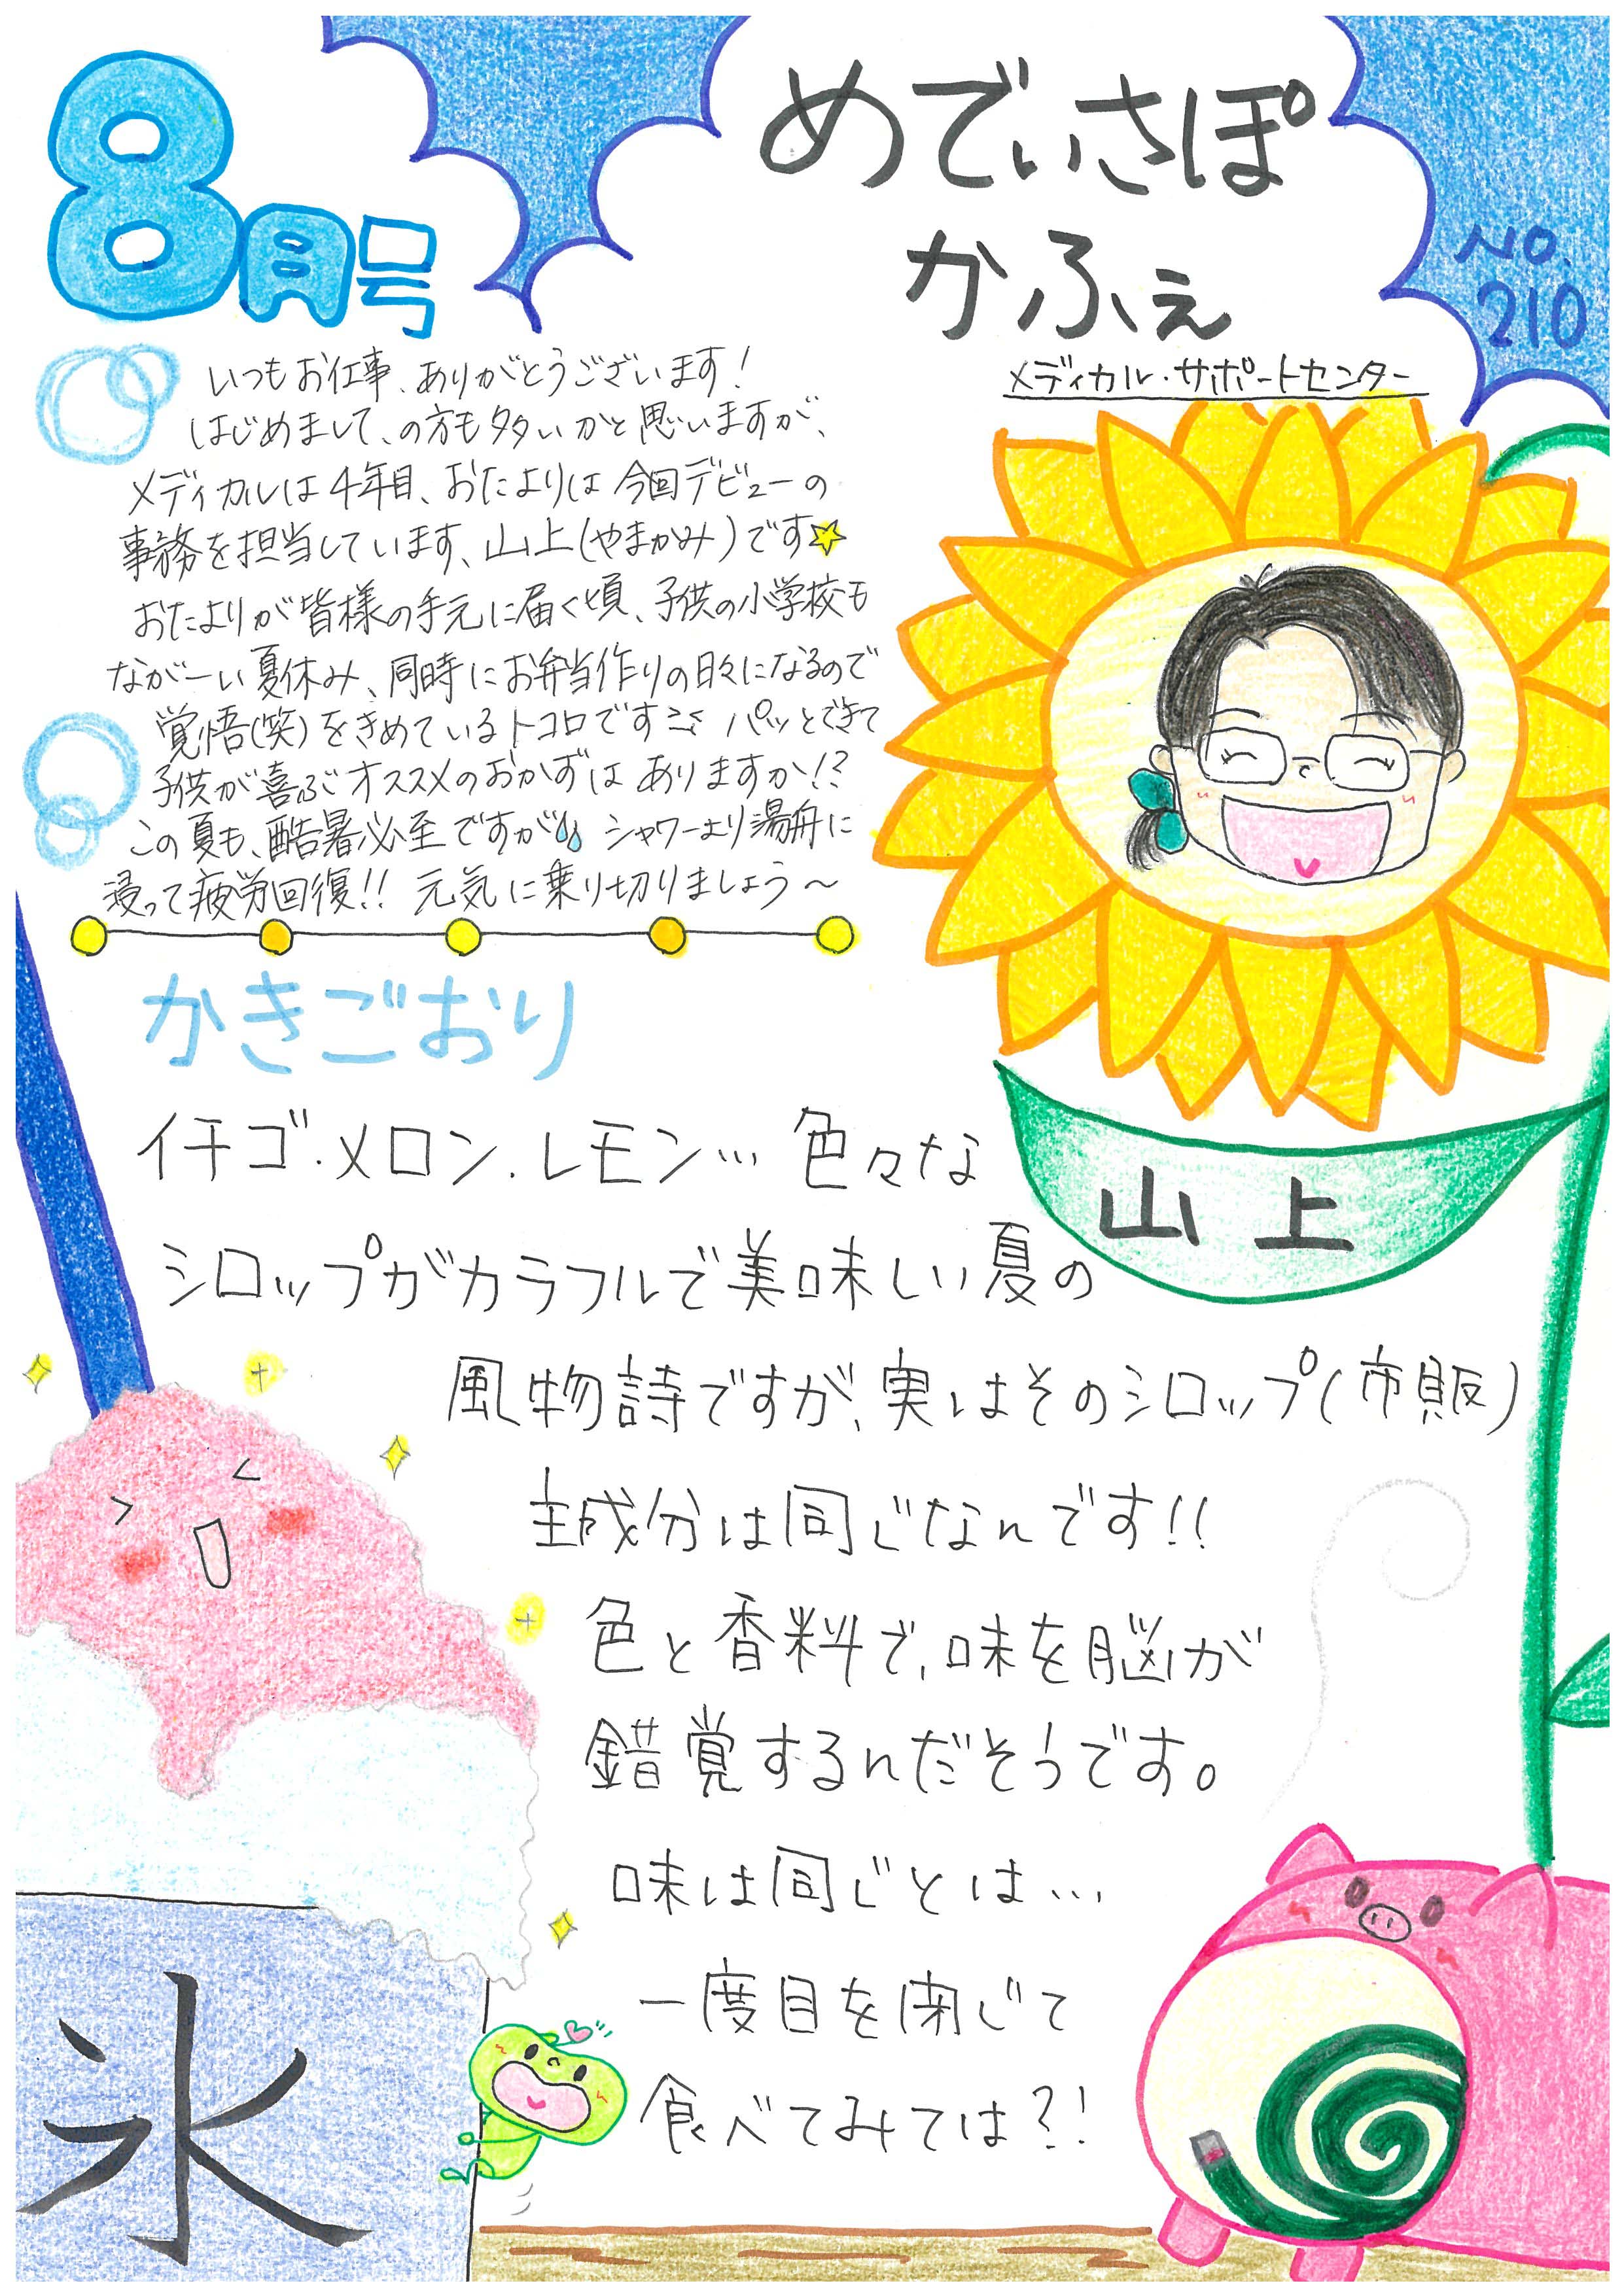 8月号
めでぃさぽ
かふぇ
NO.
210
メディカル・サポートセンター
いつもお仕事、ありがとうございます!
はじめまして、の方も多いかと思いますが、
メディカルは4年目、おたよりは今回デビューの
事務を担当しています、山上(やまかみ)です☆
おたよりが皆様の手元に届く頃、子供の小学校も
ながーい夏休み、同時にお弁当作りの日々になるので
覚悟(笑)をきめているトコロです パッとできて
子供が喜ぶオススメのおかずは ありますか!?
この夏も、酷暑必至ですが シャワーより湯舟に
浸って疲労回復!! 元気に乗り切りましょう～
かきごおり
イチゴ・メロン・レモン… 色々な
シロップがカラフルで美味しい夏の
風物詩ですが、実はそのシロップ(市販)
主成分は同じなんです!!
色と香料で、味を脳が
錯覚するんだそうです。
味は同じとは…
一度目を閉じて
食べてみては?!
山上
氷